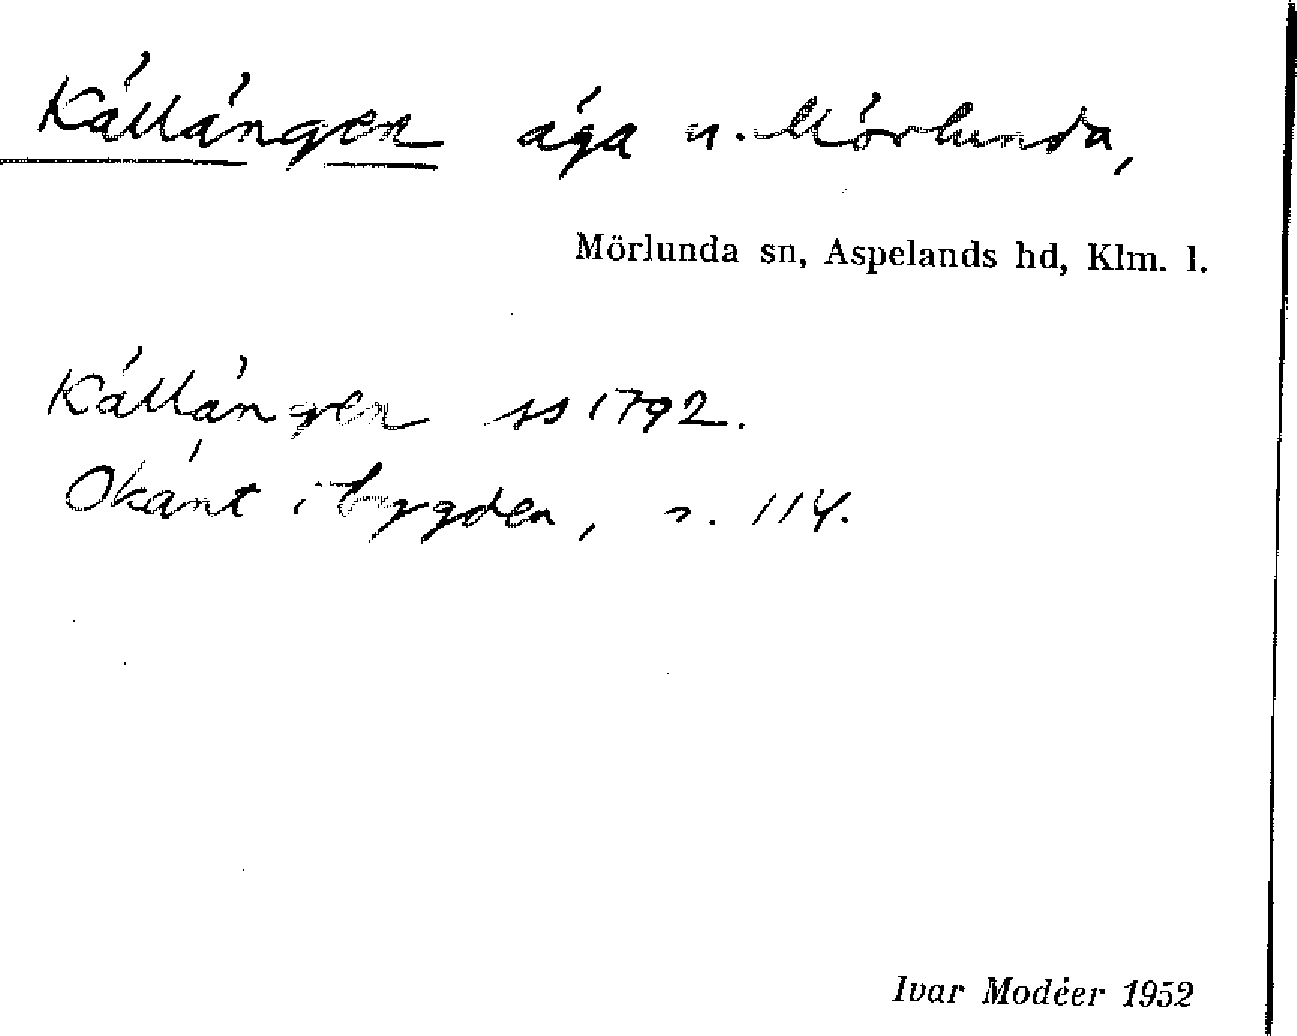 Källängen äga u. Mörlunda,
Mörlunda sn, Aspelands hd, Klm. l.
Källängen ss 1792.
Okänt i bygden, s. 114.
Ivar Modéer 1952